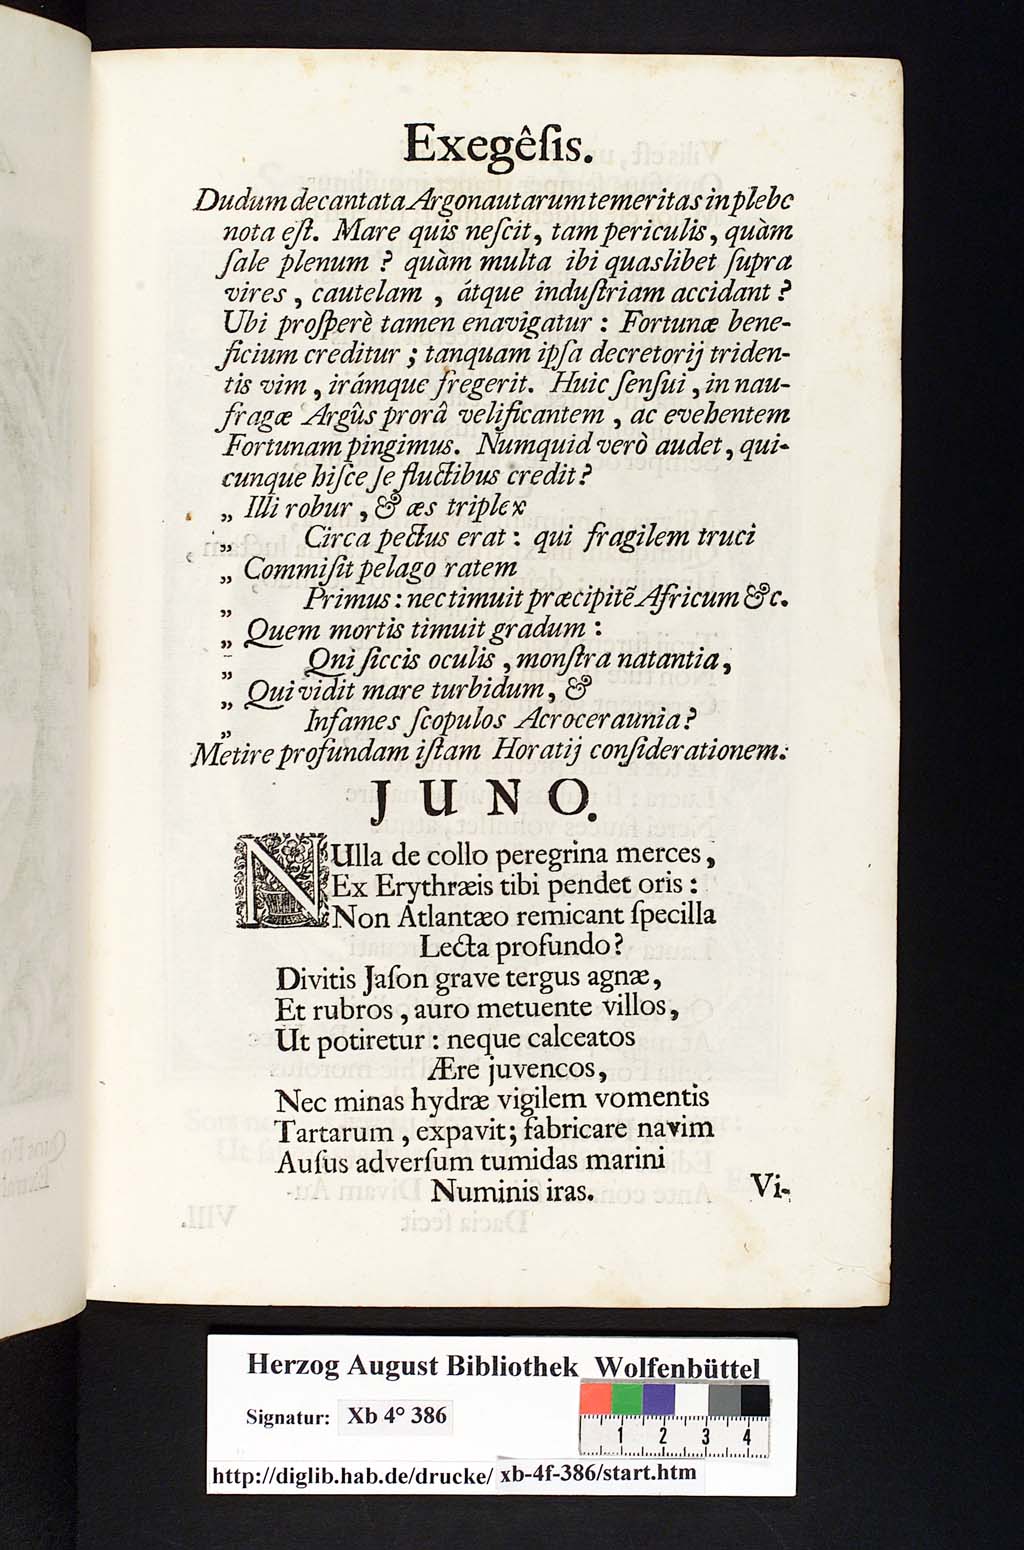 Exegêſis.
Dudum decantata Argonautarum temeritas in plebe
nota eſt. Mare quis neſcit, tam periculis, quàm
ſale plenum ? quàm multa ibi quaslibet ſupra
vires , cautelam , átque induſtriam accidant ?
Ubi proſperè tamen enavigatur : Fortunæ bene-
ficium creditur ; tanquam ipſa decretorij triden-
tis vim , irámque fregerit. Huic ſenſui , in nau-
fragæ Argûs prorâ velificantem , ac evehentem
Fortunam pingimus. Numquid verò audet, qui-
cunque hiſce ſe fluctibus credit ?
„ Illi robur , & æs triplex
„ Circa pectus erat : qui fragilem truci
„ Commiſit pelago ratem
„ Primus : nec timuit præcipitẽ Africum &c.
„ Quem mortis timuit gradum :
„ Qni ſiccis oculis , monſtra natantia,
„ Qui vidit mare turbidum, &
„ Infames ſcopulos Acroceraunia?
Metire profundam iſtam Horatij conſiderationem:
JUNO.
NUlla de collo peregrina merces,
Ex Erythræis tibi pendet oris :
Non Atlantæo remicant ſpecilla
Lecta profundo?
Divitis Jaſon grave tergus agnæ,
Et rubros , auro metuente villos,
Ut potiretur : neque calceatos
Ære juvencos,
Nec minas hydræ vigilem vomentis
Tartarum , expavit; fabricare navim
Auſus adverſum tumidas marini
Numinis iras.
Vi-
Herzog August Bibliothek Wolfenbüttel
Signatur: Xb 4° 386
1 2 3 4
http://diglib.hab.de/drucke/ xb-4f-386/start.htm